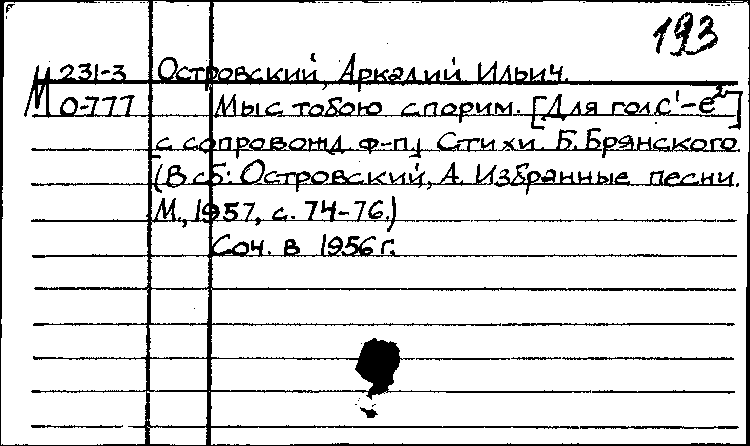 193
М 231-3 Островский, Аркадий Ильич.
О-777 Мы с тобою спорим. [Для гол. c¹-e²
с сопровожд. ф-п.] Стихи Б. Брянского
(В сб: Островский, А. Избранные песни.
М., 1957, с. 74-76.)
Соч. в 1956 г.